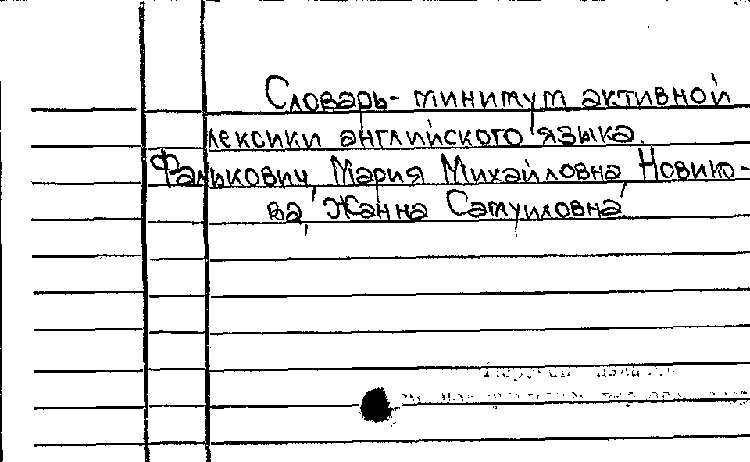 Словарь-минимум активной
лексики английского языка.
Фалькович, Мария Михайловна, Новико-
ва, Жанна Самуиловна